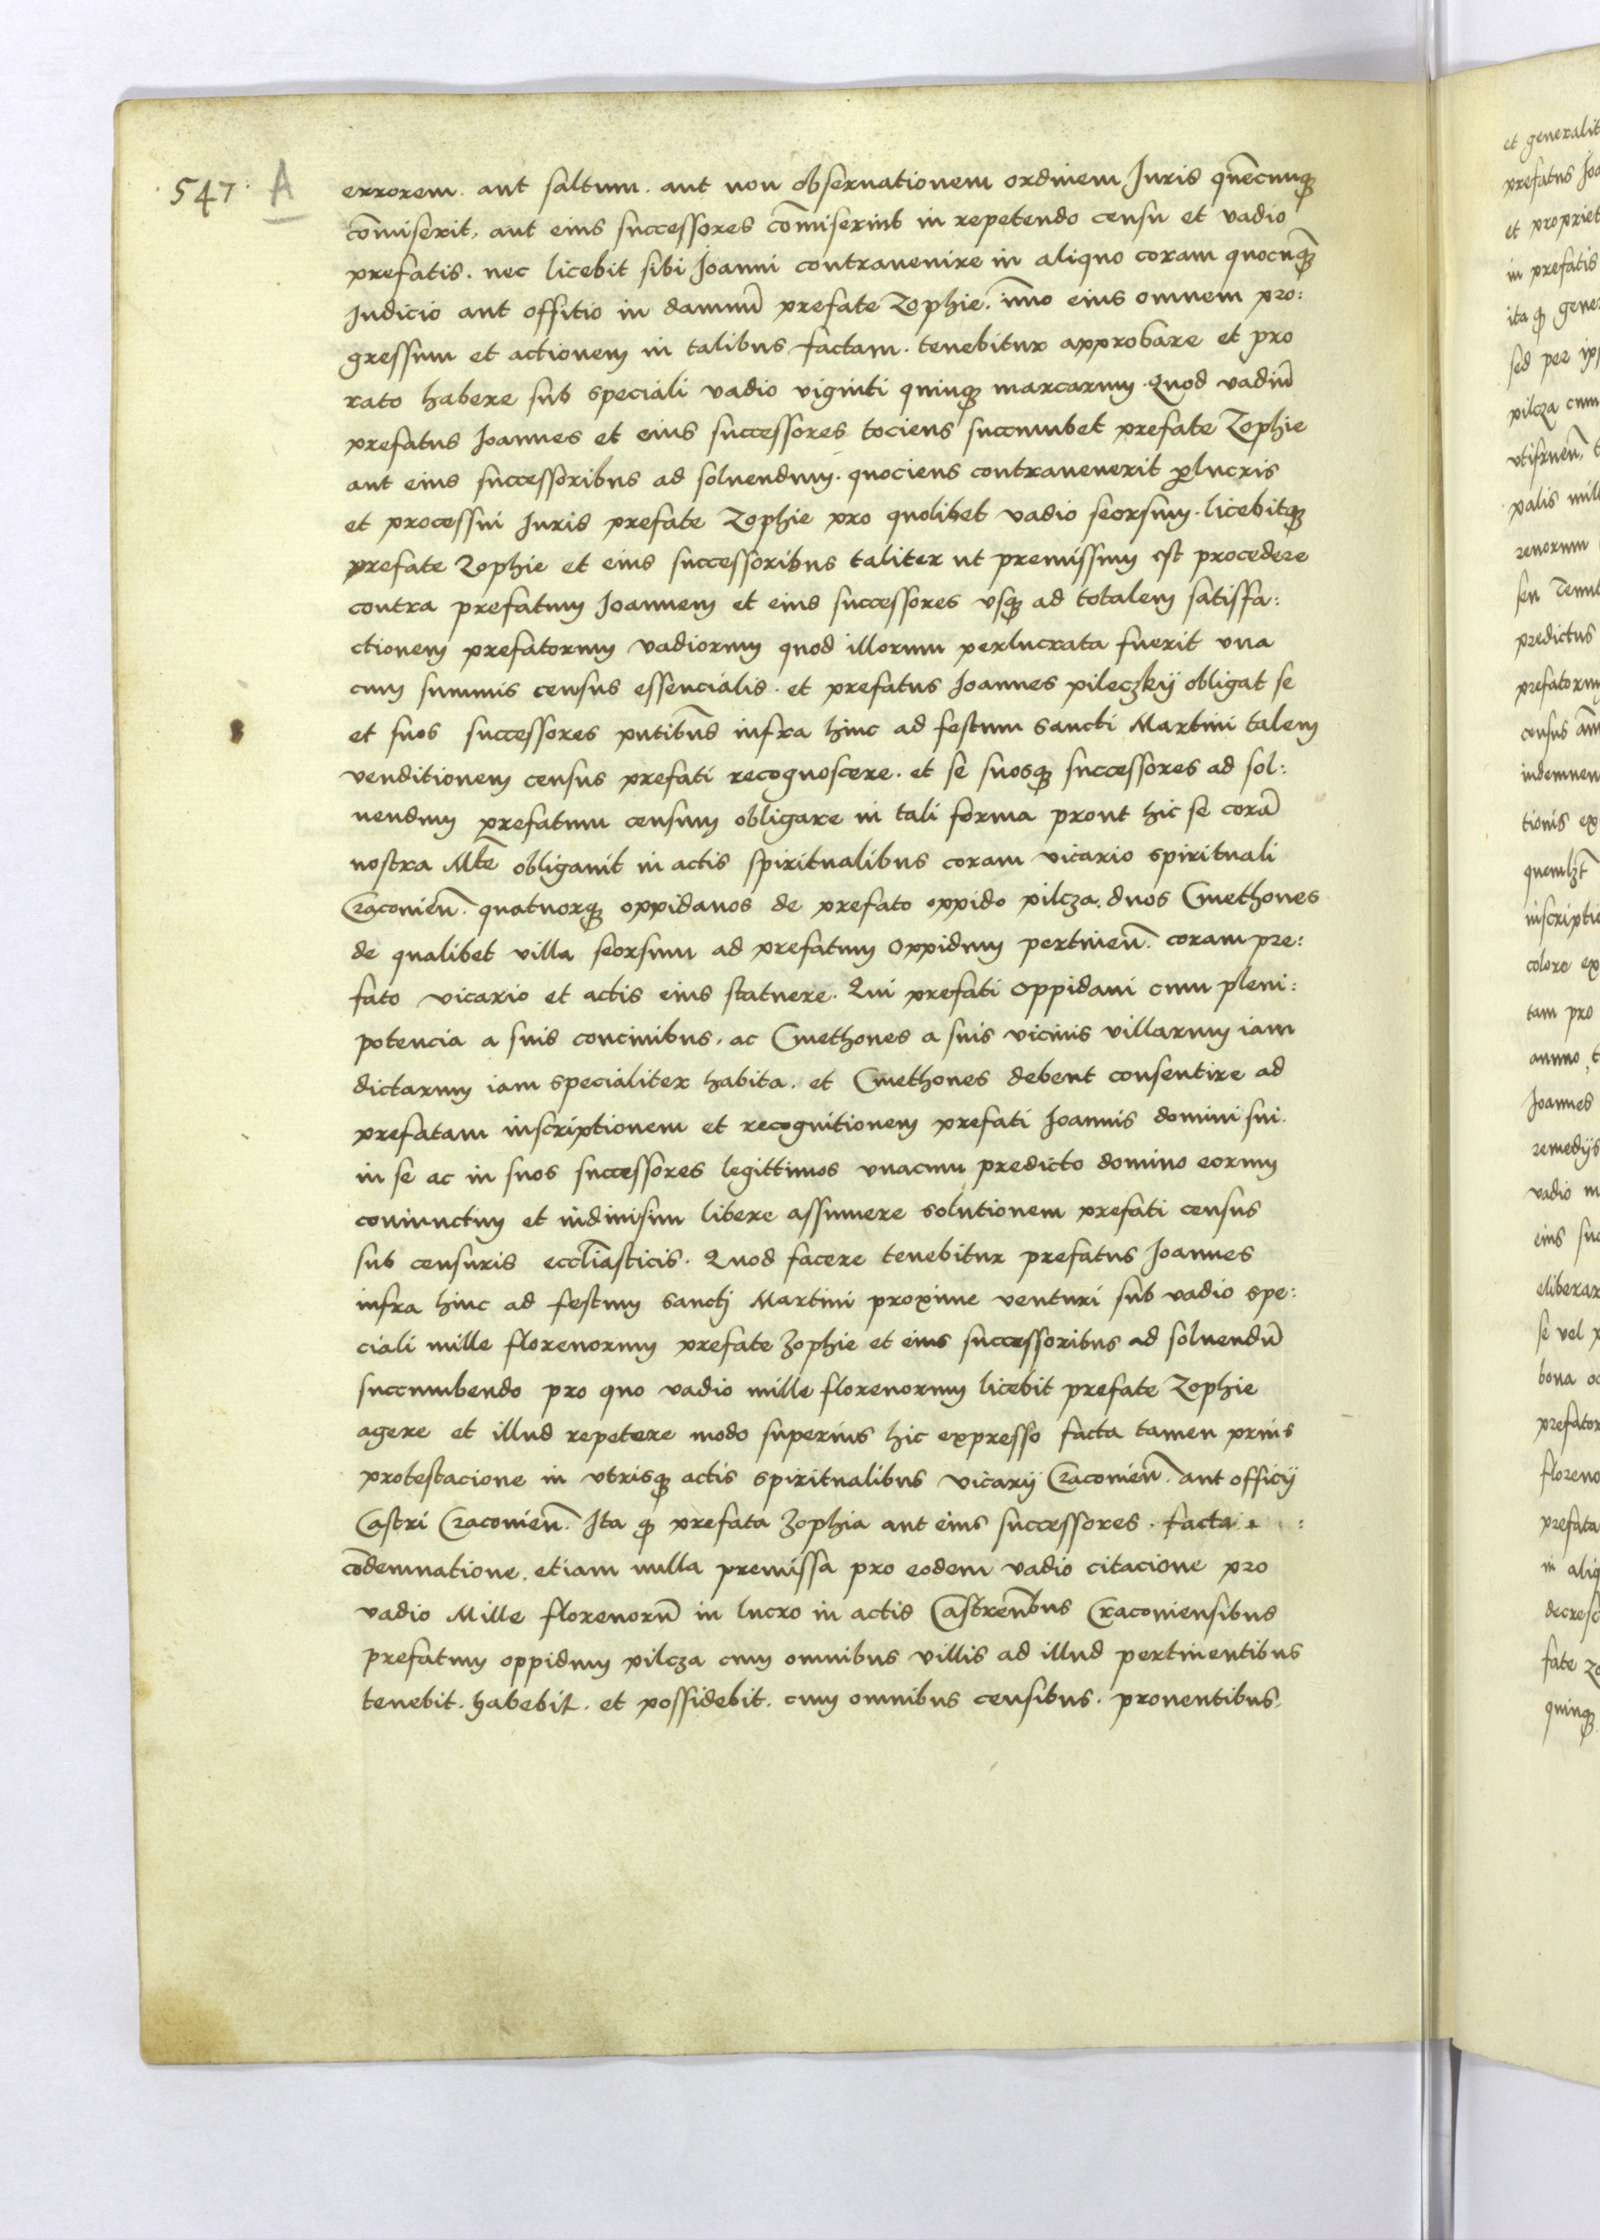 547 A
errorem. aut saltum. aut non observationem ordinem Juris quēcunq
cōmiserit, aut eius successores cōmiserint in repetendo censu et vadio
prefatis. nec licebit sibi Joanni contravenire in aliquo coram quocūq
Judicio aut offitio in damnū prefate Zophie. īmo eius omnem pro:
gressum et actionem in talibus factam. tenebitur approbare et pro
rato habere sub speciali vadio viginti quinq marcarum. Quod vadiū
prefatus Joannes et eius successores tociens succumbet prefate Zophie
aut eius successoribus ad solvendum. quociens contravenerit perlucris
et processui Juris prefate Zophie pro quolibet vadio seorsum. licebitq
prefate Zophie et eius successoribus taliter ut premissum est procedere
contra prefatum Joannem et eius successores vsq ad totalem satisfa:
ctionem prefatorum vadiorum quod illorum perlucrata fuerit vna
cum summis census essencialis. et prefatus Joannes pileczkij obligat se
et suos successores pntibus infra hinc ad festum sancti Martini talem
venditionem census prefati recognoscere. et se suosq successores ad sol:
uendum prefatum censum obligare in tali forma prout hic se corā
nostra Mte obligavit in actis spiritualibus coram vicario spirituali
Cracovieñ. quatuorq oppidanos de prefato oppido pilcza. duos Cmethones
de qualibet villa seorsum ad prefatum oppidum pertineñ. coram pre:
fato vicario et actis eius statuere. Qui prefati oppidani cum pleni:
potencia a suis concivibus. ac Cmethones a suis vicinis villarum iam
dictarum iam specialiter habita. et Cmethones debent consentire ad
prefatam inscriptionem et recognitionem prefati Joannis domini sui.
in se ac in suos successores legittimos vnacum predicto domino eorum
coniunctim et indivisim libere assumere solutionem prefati census
sub censuris eccliasticis. Quod facere tenebitur prefatus Joannes
infra hinc ad festum sancti Martini proxime venturi sub vadio spe:
ciali mille florenorum prefate Zophie et eius successoribus ad solvendū
succumbendo pro quo vadio mille florenorum licebit prefate Zophie
agere et illud repetere modo superius hic expresso facta tamen prius
protestacione in vtrisq actis spiritualibus vicarij Cracovieñ. aut officij
Castri Cracovieñ. Ita q prefata Zophia aut eius successores. facta
cōdemnatione. etiam nulla premissa pro eodem vadio citacione pro
vadio Mille florenorū in lucro in actis Castreñbus Cracoviensibus
prefatum oppidum pilcza cum omnibus villis ad illud pertinentibus
tenebit. habebit. et possidebit. cum omnibus censibus. proventibus.
et generalit
prefatus Joa
et propriet
in prefatis
ita q gene
sed per ip
pilcza cum
palis mill
renorum
seu Tenut
predictus
prefatorum
census
indemnem
tionis ex
inscriptio
colore ex
tam pro
Joannes
remedijs
vadio
eius suc
eliberar
se vel
bona
prefator
floreno
prefata
in aliq
decres
fate Zo
quinq